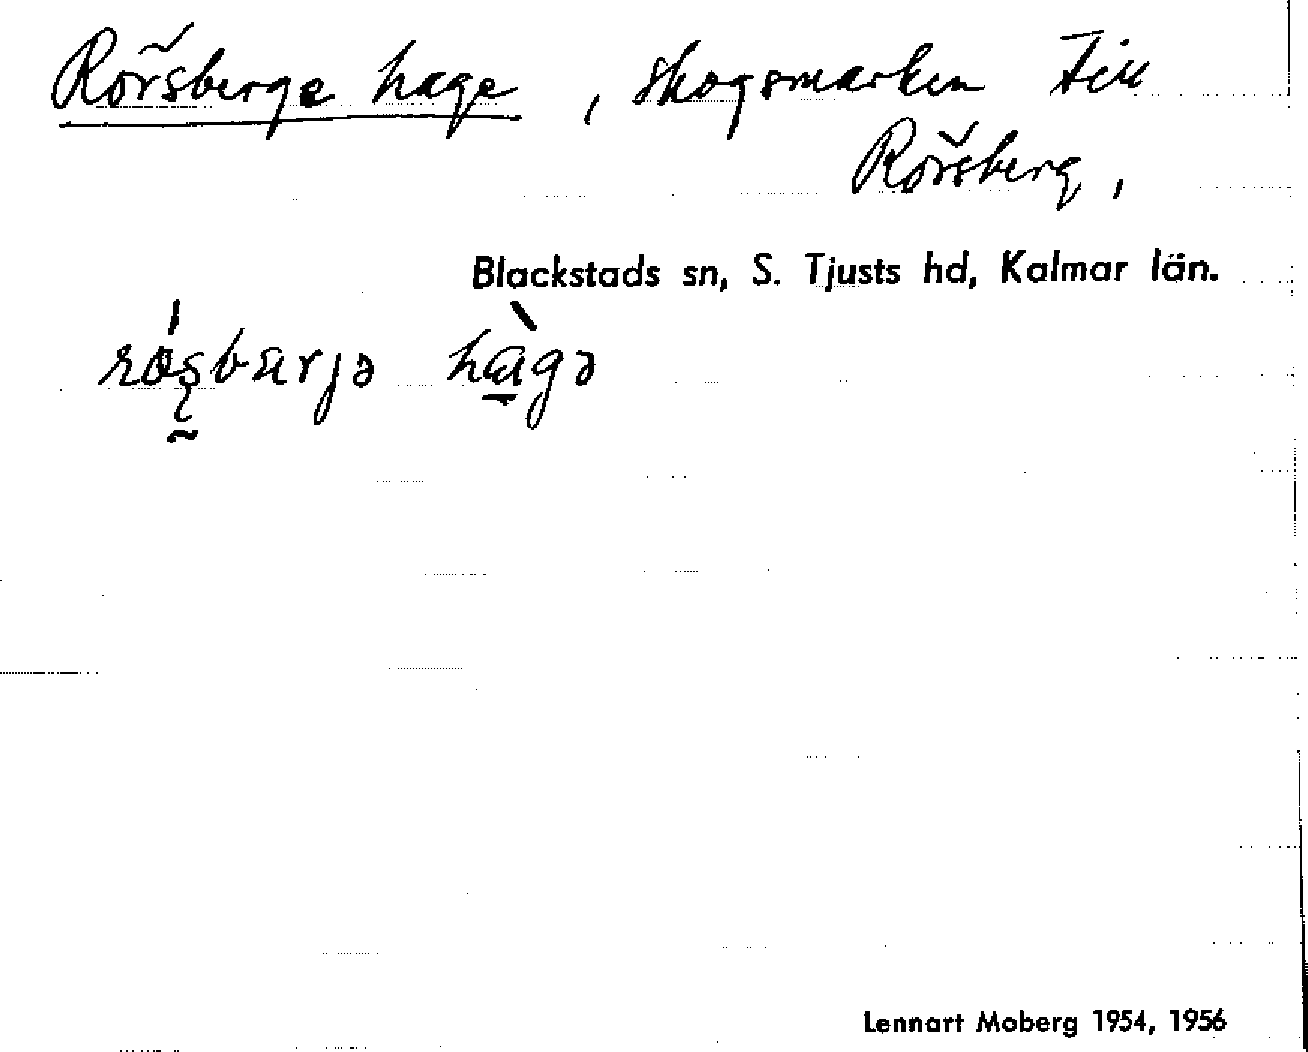 Rörsberge hage, skogsmarken till
Rörsberg,
Blackstads sn, S. Tjusts hd, Kalmar län.
hagə
Lennart Moberg 1954, 1956